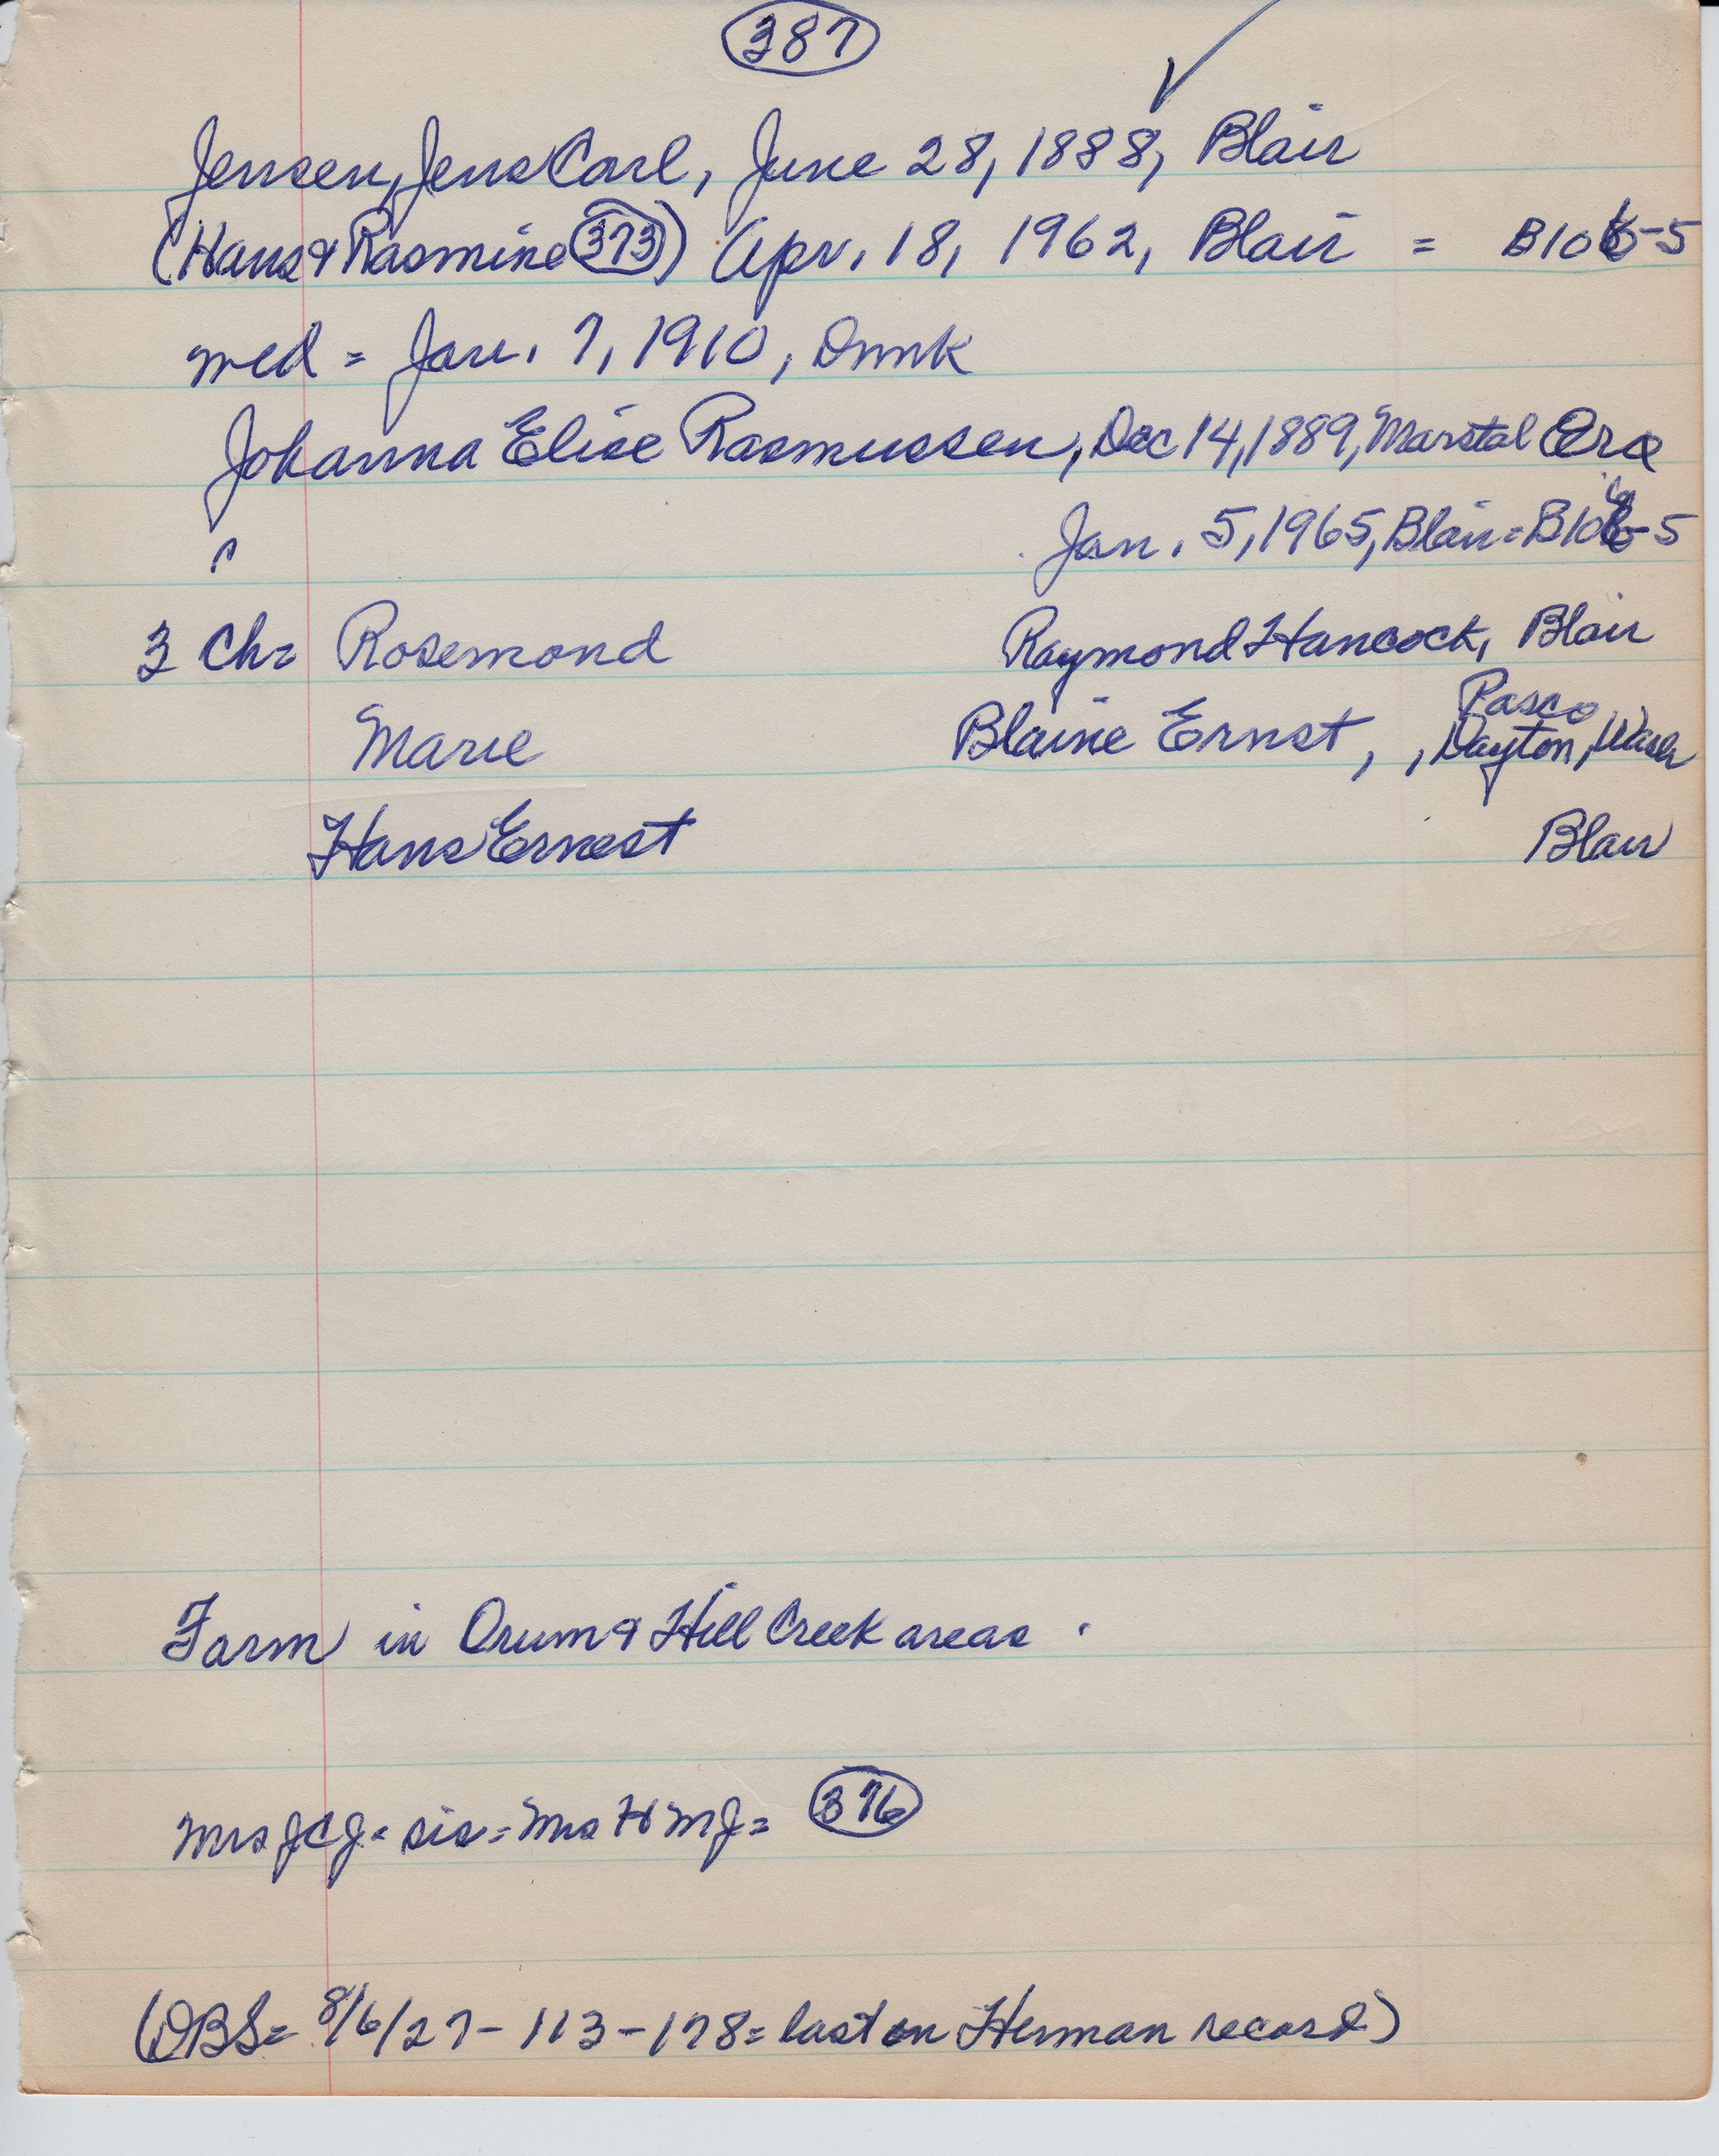 387
✓
Jensen, Jens Carl, June 28, 1888, Blair
(Hans & Rasmine 373) Apr. 18, 1962, Blair = B106-5
med = Jan. 7, 1910, Dmnk
Johanna Elise Rasmussen, Dec 14, 1889, Marstal
Jan. 5, 1965, Blair = B106-5
3 Ch = Rosemond Raymond Hancock, Blair
Pasco
Marie Blaine Ernst, , Dayton, Wash
Hans Ernest Blair
Farm in Orum & Hill Creek areas .
Mrs JCJ = sis = Mrs HMJ = 376
(DBS = 8/6/27 - 113 - 178 = last on Herman record)